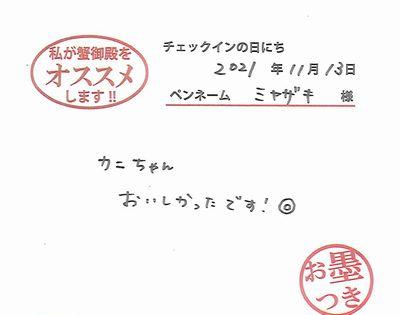 私が蟹御殿を
オススメ
します!!
チェックインの日にち
2021 年 11月 13日
ペンネーム ミヤザキ 様
カニちゃん
おいしかったです!◎
お墨
つき